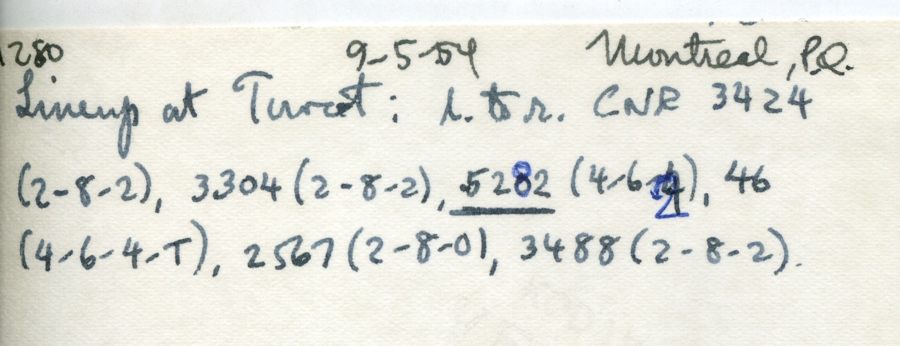 1280 9-5-54 Montreal, P.Q.
Lineup at Turcot: l. to r. CNR 3424
(2-8-2), 3304 (2-8-2), 5282 (4-6-2), 46
(4-6-4-T), 2567 (2-8-0), 3488 (2-8-2).